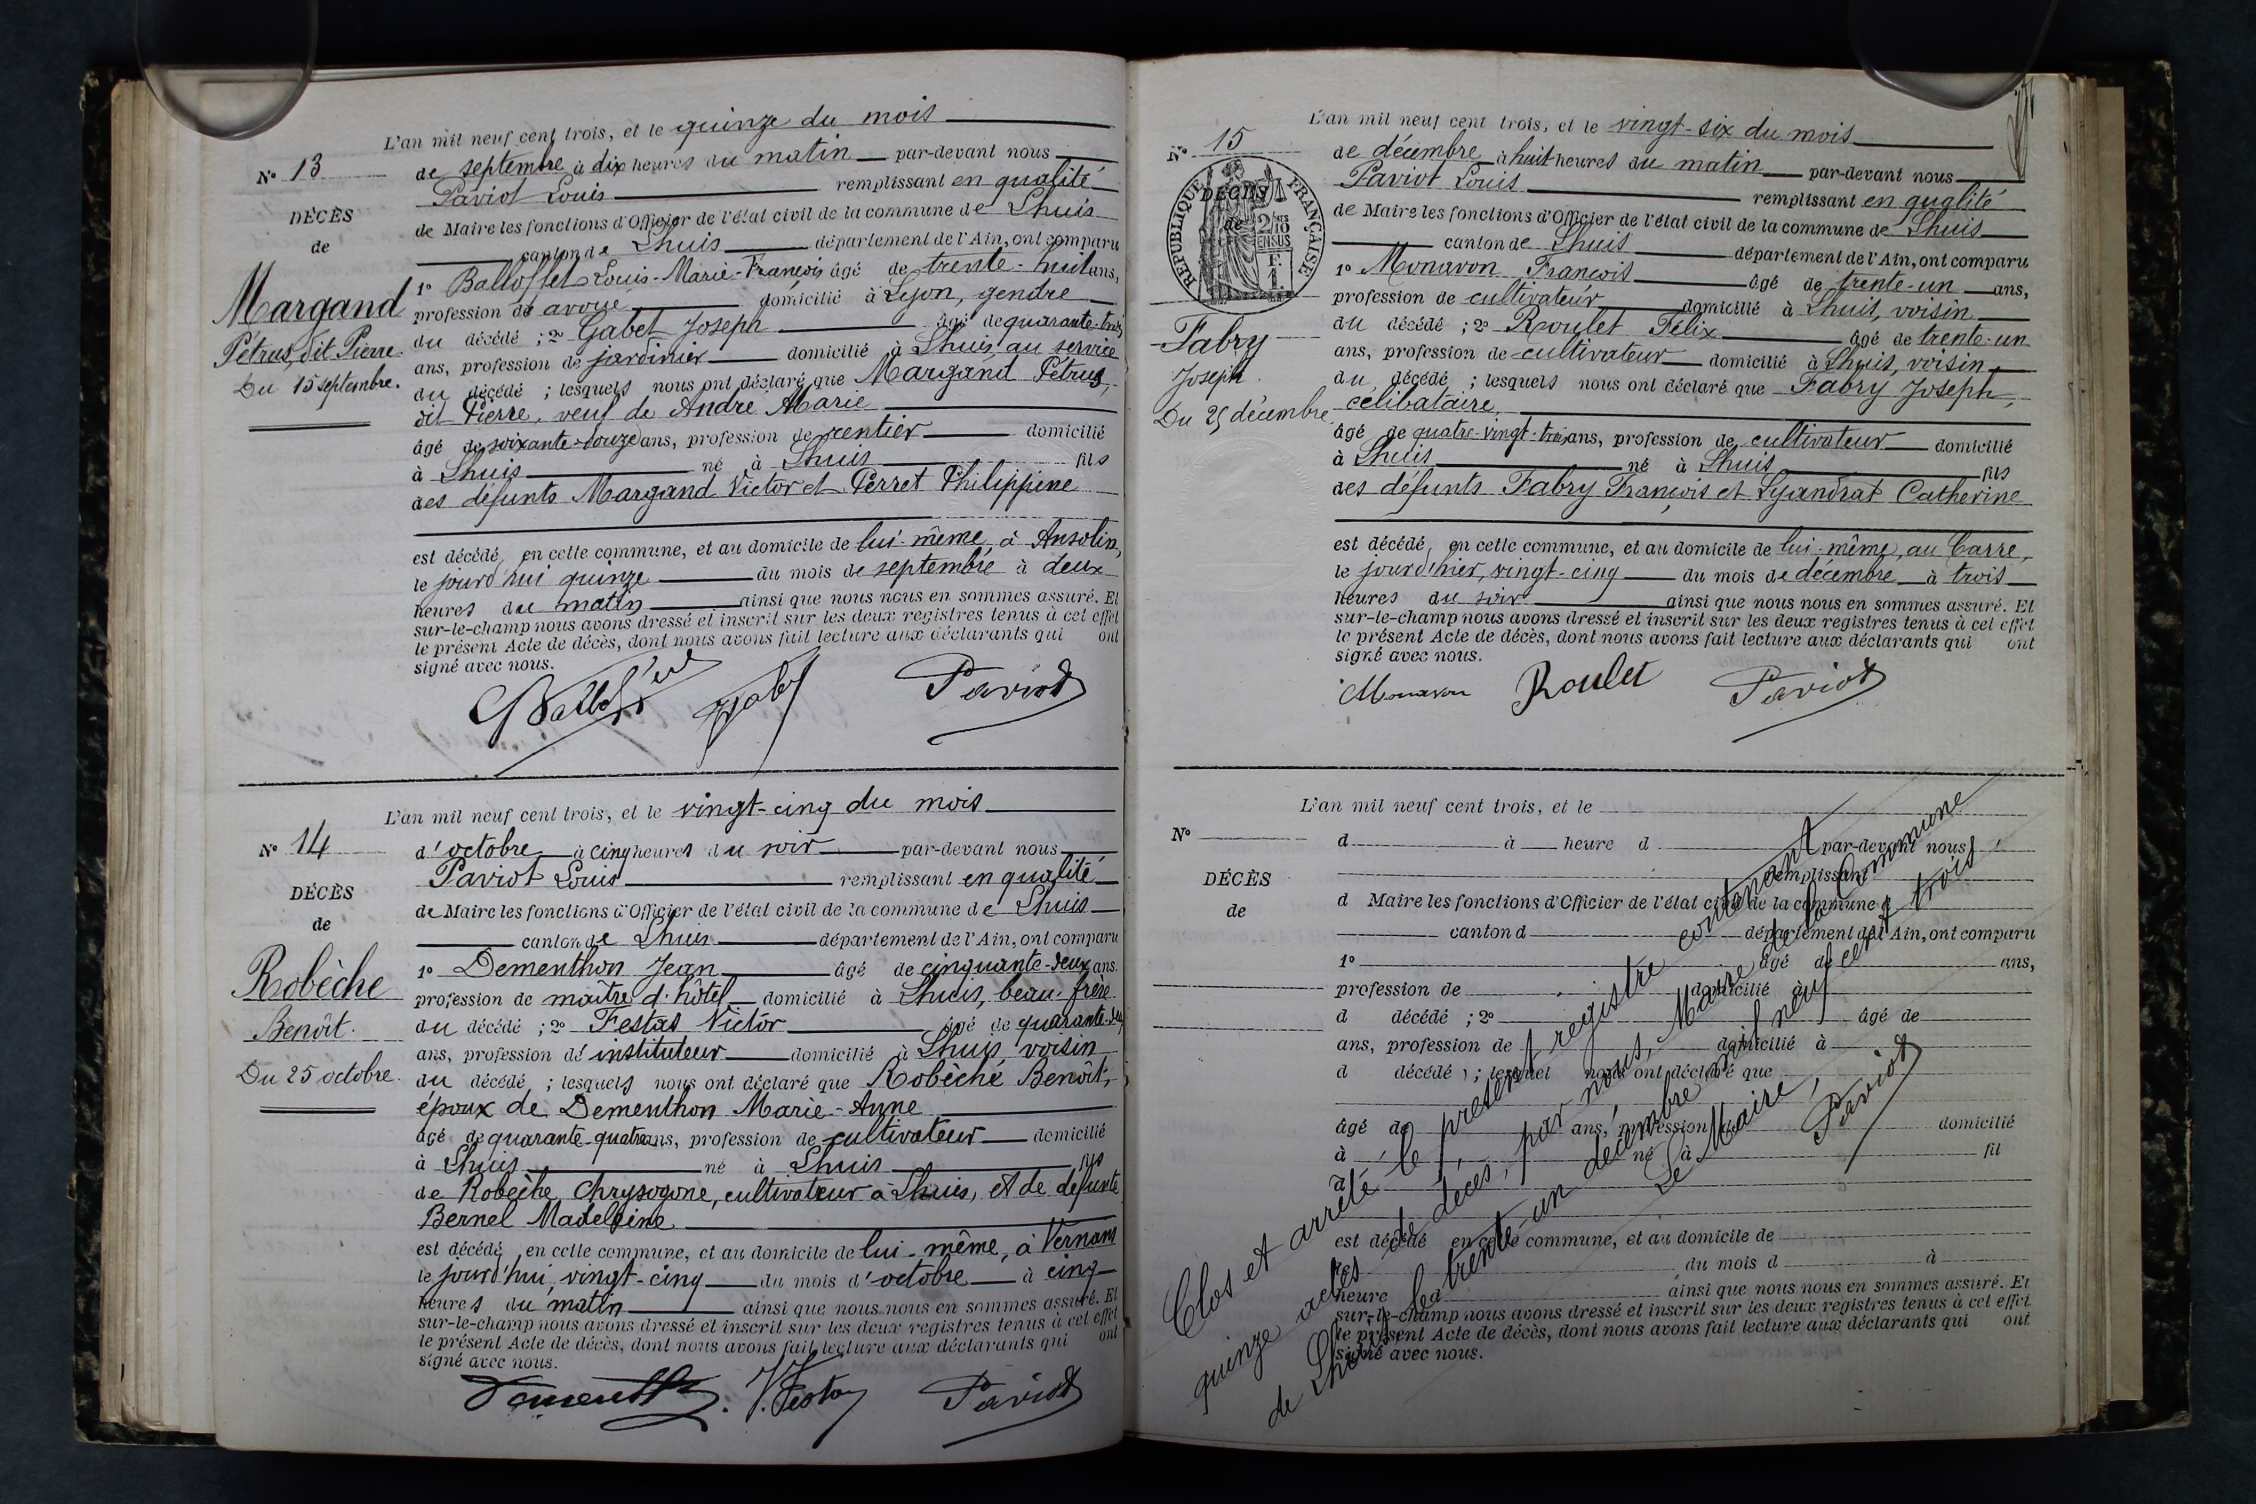 L'an mil neuf cent trois, et le quinze du mois
N° 13
de septembre à dix heures du matin par-devant nous
Paviot Louis remplissant en qualité
DÉCÈS
de Maire les fonctions d'Officier de l'état civil de la commune de Lhuis
de
canton de Lhuis département de l'Ain, ont comparu
1° Balloffet Louis-Marie-François âgé de trente-huit ans,
Margand
profession de avoué domicilié à Lyon, gendre
Pétrus, dit Pierre.
du décédé ; 2° Gabet Joseph âgé de quarante-trois
ans, profession de jardinier domicilié à Lhuis, au service
Du 15 septembre.
du décédé ; lesquels nous ont déclaré que Margand Pétrus,
dit Pierre, veuf de André Marie
âgé de soixante-douze ans, profession de rentier domicilié
à Lhuis né à Lhuis fils
des défunts Margand Victor et Perret Philippine
est décédé en cette commune, et au domicile de lui-même, à Ansolin,
le jourd'hui quinze du mois de septembre à deux
heures du matin ainsi que nous nous en sommes assuré. Et
sur-le-champ nous avons dressé et inscrit sur les deux registres tenus à cet effet
le présent Acte de décès, dont nous avons fait lecture aux déclarants qui ont
signé avec nous.
Paviot
L'an mil neuf cent trois, et le vingt-cinq du mois
N° 14
d'octobre à cinq heures du soir par-devant nous
Paviot Louis remplissant en qualité
DÉCÈS
de Maire les fonctions d'Officier de l'état civil de la commune de Lhuis
de
canton de Lhuis département de l'Ain, ont comparu
1° Dementhon Jean âgé de cinquante-deux ans.
Robèche
profession de maître d'hôtel domicilié à Lhuis, beau-frère
Benoît.
du décédé ; 2° Festas Victor âgé de quarante-deux
ans, profession de instituteur domicilié à Lhuis, voisin
Du 25 octobre.
du décédé ; lesquels nous ont déclaré que Robèche Benoît,
époux de Dementhon Marie-Anne
âgé de quarante-quatre ans, profession de cultivateur domicilié
à Lhuis né à Lhuis fils
de Robèche Chrysogone, cultivateur à Lhuis, et de defunte
Bernel Madeleine
est décédé en cette commune, et au domicile de lui-même, à Vernans
le jourd'hui, vingt-cinq du mois d'octobre à cinq
heures du matin ainsi que nous nous en sommes assuré. Et
sur-le-champ nous avons dressé et inscrit sur les deux registres tenus à cet effet
le présent Acte de décès, dont nous avons fait lecture aux déclarants qui ont
signé avec nous.
Dementhon. V. Festas Paviot
L'an mil neuf cent trois, et le vingt-six du mois
N° 15
de décembre à huit heures du matin par-devant nous
RÉPUBLIQUE FRANÇAISE
2/10
EN SUS
F.
1.
DÉCÈS
de
Paviot Louis remplissant en qualité
de Maire les fonctions d'Officier de l'état civil de la commune de Lhuis
canton de Lhuis département de l'Ain, ont comparu
1° Monavon François âgé de trente-un ans,
profession de cultivateur domicilié à Lhuis, voisin
Fabry
du décédé ; 2° Roulet Félix âgé de trente-un
ans, profession de cultivateur domicilié à Lhuis, voisin
Joseph
du décédé ; lesquels nous ont déclaré que Fabry Joseph,
Du 25 décembre
célibataire,
âgé de quatre-vingt-trois ans, profession de cultivateur domicilié
à Lhuis né à Lhuis fils
des défunts Fabry François et Lyandrat Catherine
est décédé en cette commune, et au domicile de lui-même, au Carre,
le jourd'hier, vingt-cinq du mois de décembre à trois
heures du soir ainsi que nous nous en sommes assuré. Et
sur-le-champ nous avons dressé et inscrit sur les deux registres tenus à cet effet
le présent Acte de décès, dont nous avons fait lecture aux déclarants qui ont
signé avec nous.
Monavon Roulet Paviot
L'an mil neuf cent trois, et le
N°
d à heure d par-devant nous
remplissant
DÉCÈS
d Maire les fonctions d'Officier de l'état civil de la commune d
de
canton d département de l'Ain, ont comparu
1° âgé de ans,
profession de domicilié à
d décédé ; 2° âgé de
ans, profession de domicilié à
d décédé ; lesquel nous ont déclaré que
âgé de ans, profession de domicilié
à né à fil
d
est décédé en cette commune, et au domicile de
le du mois d à
heure d ainsi que nous nous en sommes assuré. Et
sur-le-champ nous avons dressé et inscrit sur les deux registres tenus à cet effet
le présent Acte de décès, dont nous avons fait lecture aux déclarants qui ont
signé avec nous.
Clos et arrêté le présent registre contenant
quinze actes de décès, par nous, Maire de la Commune
de Lhuis, le trente-un décembre mil neuf cent trois
Le Maire,
Paviot